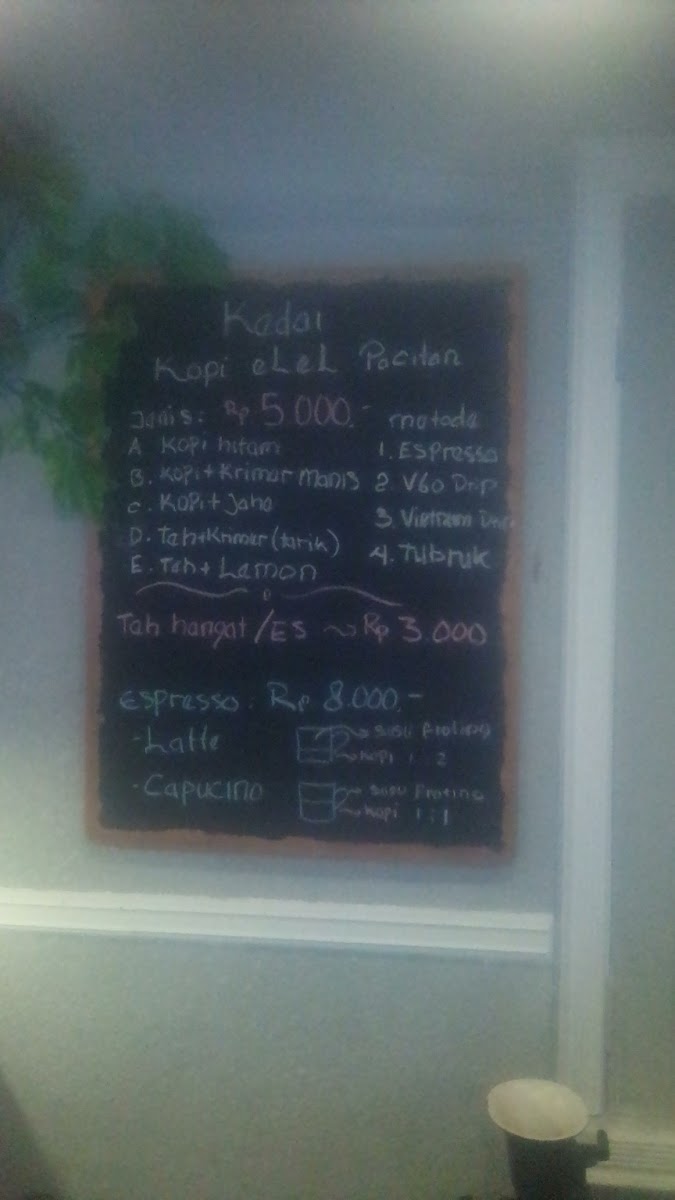 Kedai
Kopi eLeL Pacitan
Jenis: Rp 5.000.-
A. Kopi hitam
B. Kopi + Krimer Manis
C. Kopi + Jahe
D. Teh + Krimer (tarik)
E. Teh + Lemon
metode
1. Espresso
2. V60 Drip
3. Vietnam Drip
4. Tubruk
Teh hangat / ES ~ Rp 3.000
Espresso: Rp 8.000.-
- Latte
susu froting
kopi 1 : 2
- Capucino
susu froting
kopi 1 : 1